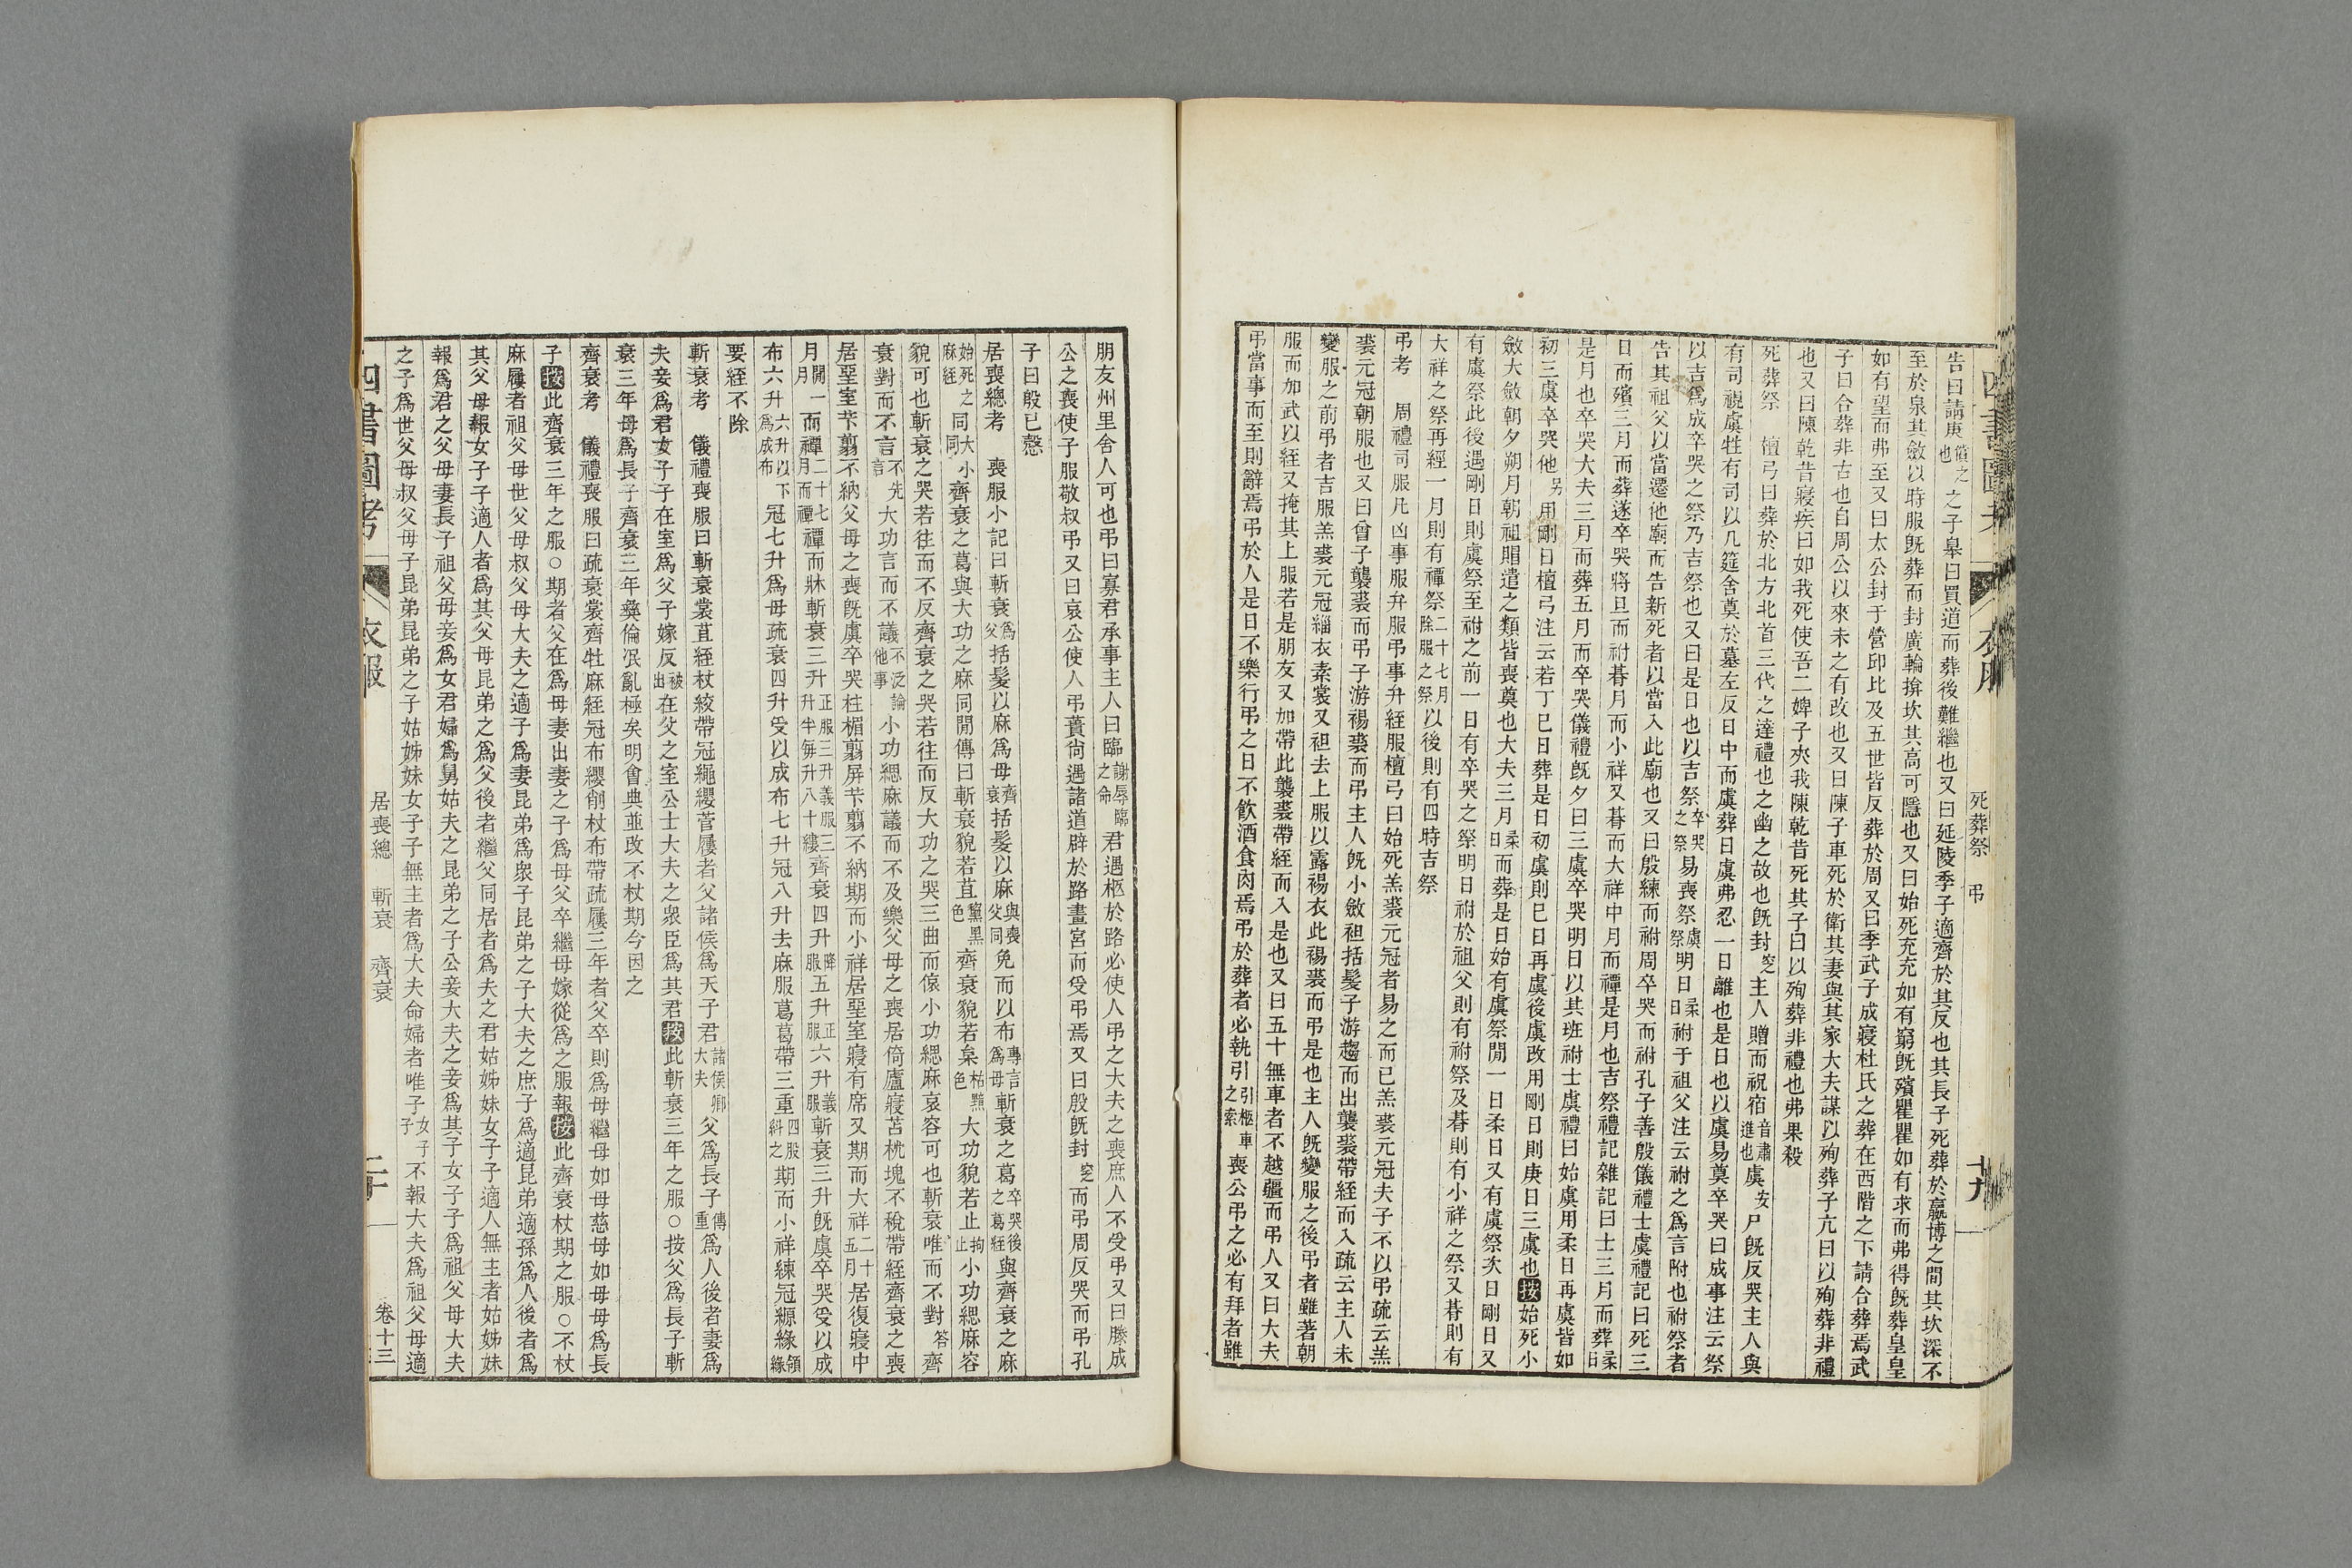 告曰請庚償之也之子皋曰買道而葬後難繼也又曰延陵季子適齊於其反也其長子死葬於嬴博之間其坎深不
至於泉其斂以時服旣葬而封廣輪揜坎其高可隱也又曰始死充充如有窮旣殯瞿瞿如有求而弗得旣葬皇皇
如有望而弗至又曰太公封于營印比及五世皆反葬於周又曰季武子成寢杜氏之葬在西階之下請合葬焉武
子曰合葬非古也自周公以來未之有改也又曰陳子車死於衛其妻與其家大夫謀以殉葬子亢曰以殉葬非禮
也又曰陳乾昔寢疾曰如我死使吾二婢子夾我陳乾昔死其子曰以殉葬非禮也弗果殺
死葬祭　檀弓曰葬於北方北首三代之達禮也之幽之故也旣封窆主人贈而祝宿音肅進也虞安尸旣反哭主人與
有司視虞牲有司以几筵舍奠於墓左反日中而虞葬日虞弗忍一日離也是日也以虞易奠卒哭曰成事注云祭
以吉爲成卒哭之祭乃吉祭也又曰是日也以吉祭卒哭之祭易喪祭虞祭明日柔日祔于祖父注云祔之爲言附也祔祭者
告其祖父以當遷他廟而告新死者以當入此廟也又曰殷練而祔周卒哭而祔孔子善殷儀禮士虞禮記曰死三
日而殯三月而葬遂卒哭將旦而祔朞月而小祥又朞而大祥中月而禫是月也吉祭禮記雜記曰士三月而葬柔日
是月也卒哭大夫三月而葬五月而卒哭儀禮旣夕曰三虞卒哭明日以其班祔士虞禮曰始虞用柔日再虞皆如
初三虞卒哭他另用剛日檀弓注云若丁巳日葬是日初虞則巳日再虞後虞改用剛日則庚日三虞也按始死小
斂大斂朝夕朔月朝祖賵遣之類皆喪奠也大夫三月柔日而葬是日始有虞祭閒一日柔日又有虞祭次日剛日又
有虞祭此後遇剛日則虞祭至祔之前一日有卒哭之祭明日祔於祖父則有祔祭及朞則有小祥之祭又朞則有
大祥之祭再經一月則有禫祭二十七月除服之祭以後則有四時吉祭
弔考　周禮司服凡凶事服弁服弔事弁絰服檀弓曰始死羔裘元冠者易之而已羔裘元冠夫子不以弔疏云羔
裘元冠朝服也又曰曾子襲裘而弔子游裼裘而弔主人旣小斂袒括髮子游趨而出襲裘帶絰而入疏云主人未
變服之前弔者吉服羔裘元冠緇衣素裳又袒去上服以露裼衣此裼裘而弔是也主人旣變服之後弔者雖著朝
服而加武以絰又掩其上服若是朋友又加帶此襲裘帶絰而入是也又曰五十無車者不越疆而弔人又曰大夫
弔當事而至則辭焉弔於人是日不樂行弔之日不飮酒食肉焉弔於葬者必執引引柩車之索喪公弔之必有拜者雖
死葬祭　弔
朋友州里舍人可也弔曰寡君承事主人曰臨謝辱臨之命君遇柩於路必使人弔之大夫之喪庶人不受弔又曰滕成
公之喪使子服敬叔弔又曰哀公使人弔蕢尙遇諸道辟於路畫宮而受弔焉又曰殷旣封窆而弔周反哭而弔孔
子曰殷已慤
居喪總考　喪服小記曰斬衰爲父括髮以麻爲母齊衰括髮以麻與喪父同免而以布專言爲母斬衰之葛卒哭後之葛絰與齊衰之麻
始死之麻絰同大小同齊衰之葛與大功之麻同閒傳曰斬衰貌若苴黧黑色齊衰貌若枲枯黯色大功貌若止拘止小功緦麻容
貌可也斬衰之哭若往而不反齊衰之哭若往而反大功之哭三曲而偯小功緦麻哀容可也斬衰唯而不對答齊
衰對而不言不先言大功言而不議不泛論他事小功緦麻議而不及樂父母之喪居倚廬寢苫枕塊不稅帶絰齊衰之喪
居堊室苄翦不納父母之喪旣虞卒哭柱楣翦屏苄翦不納期而小祥居堊室寢有席又期而大祥二十五月居復寢中
月閒一月而禫二十七月而禫禫而牀斬衰三升正服三升義服三升半每升八十縷齊衰四升降服五升正服六升義服斬衰三升旣虞卒哭受以成
布六升六升以下爲成布冠七升爲母疏衰四升受以成布七升冠八升去麻服葛葛帶三重四股糾之期而小祥練冠縓緣領緣
要絰不除
斬衰考　儀禮喪服曰斬衰裳苴絰杖絞帶冠繩纓菅屨者父諸侯爲天子君諸侯卿大夫父爲長子傳重爲人後者妻爲
夫妾爲君女子子在室爲父子嫁反被出在父之室公士大夫之衆臣爲其君按此斬衰三年之服○按父爲長子斬
衰三年母爲長子齊衰三年彝倫泯亂極矣明會典並改不杖期今因之
齊衰考　儀禮喪服曰疏衰裳齊牡麻絰冠布纓削杖布帶疏屨三年者父卒則爲母繼母如母慈母如母母爲長
子按此齊衰三年之服○期者父在爲母妻出妻之子爲母父卒繼母嫁從爲之服報按此齊衰杖期之服○不杖
麻屨者祖父母世父母叔父母大夫之適子爲妻昆弟爲衆子昆弟之子大夫之庶子爲適昆弟適孫爲人後者爲
其父母報女子子適人者爲其父母昆弟之爲父後者繼父同居者爲夫之君姑姊妹女子子適人無主者姑姊妹
報爲君之父母妻長子祖父母妾爲女君婦爲舅姑夫之昆弟之子公妾大夫之妾爲其子女子子爲祖父母大夫
之子爲世父母叔父母子昆弟昆弟之子姑姊妹女子子無主者爲大夫命婦者唯子女子子不報大夫爲祖父母適
四書圖考　衣服　居喪總　斬衰　齊衰　二十　卷十三